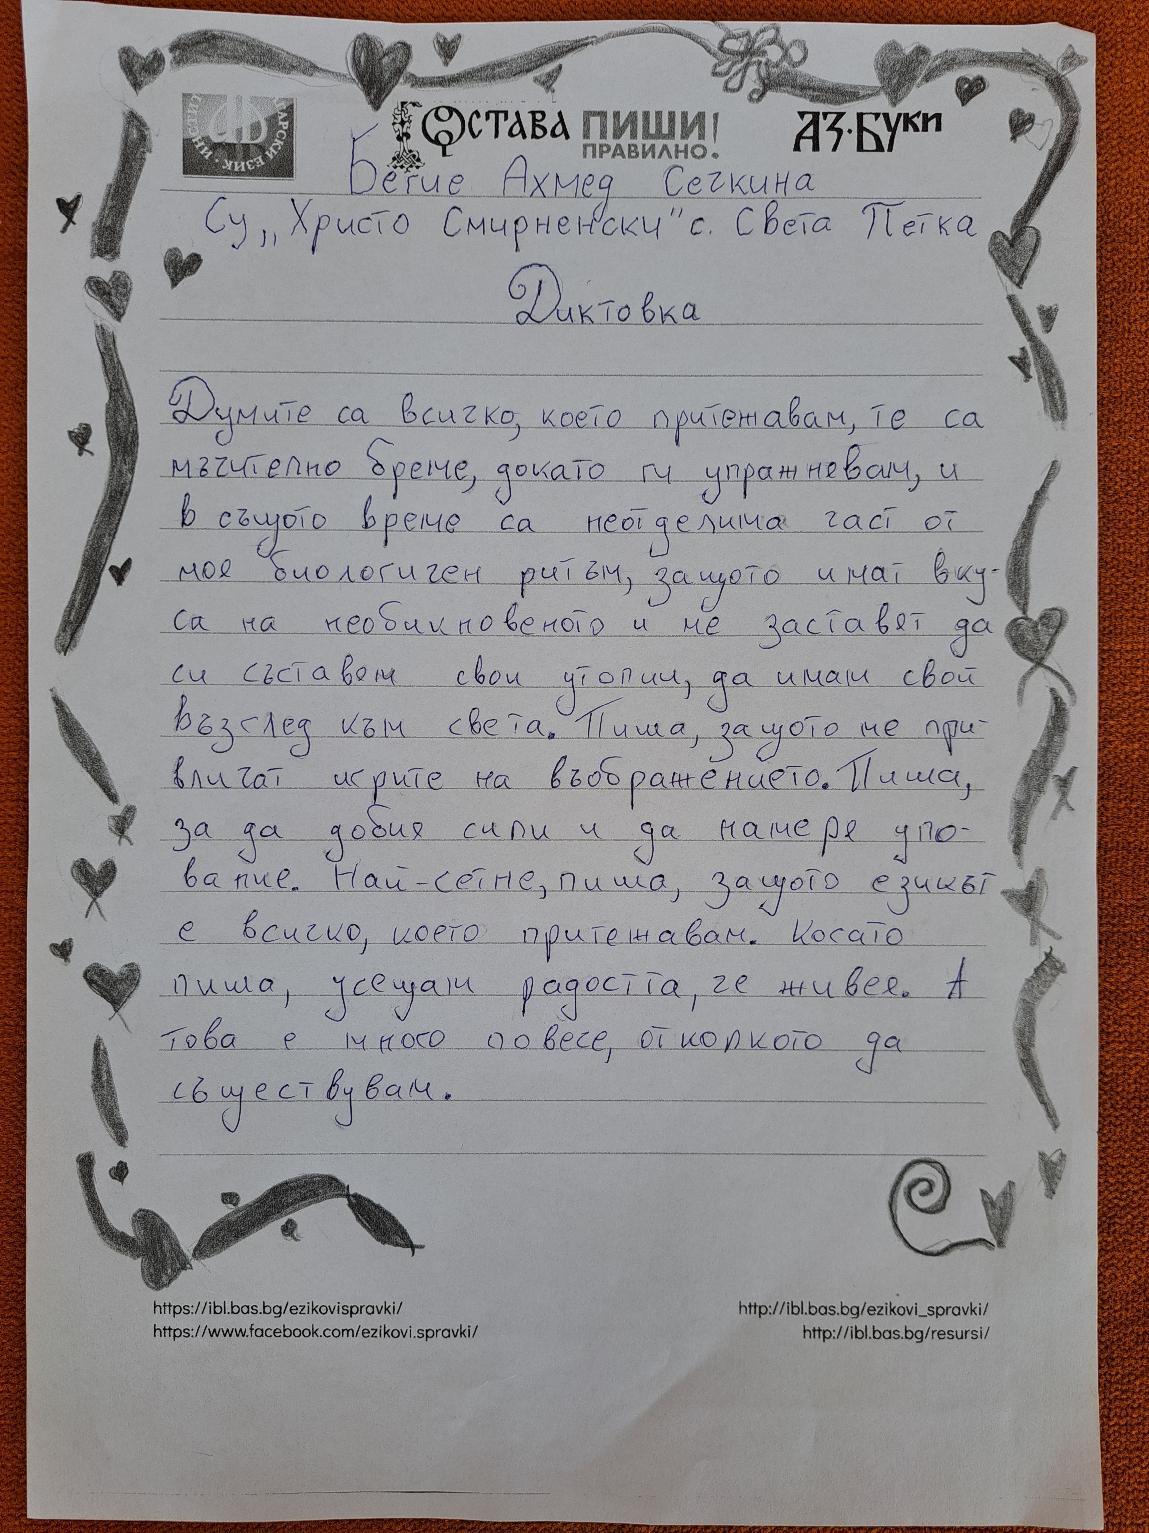 ОСТАВА ПИШИ! ПРАВИЛНО. АЗ·БУКИ
Бегие Ахмед Сечкина
Су „Христо Смирненски" с. Света Петка
Диктовка
Думите са всичко, което притежавам, те са
мъчително бреме, докато ги упражневам, и
в същото време са неотделима част от
моя биологичен ритъм, защото имат вку-
са на необикновеното и ме заставят да
си съставям свои утопии, да имам свой
възглед към света. Пиша, защото ме при-
вличат игрите на въображението. Пиша,
за да добия сили и да намеря упо-
вание. Най-сетне, пиша, защото езикът
е всичко, което притежавам. Когато
пиша, усещам радостта, че живея. А
това е много повече, отколкото да
съществувам.
https://ibl.bas.bg/ezikovispravki/ http://ibl.bas.bg/ezikovi_spravki/
https://www.facebook.com/ezikovi.spravki/ http://ibl.bas.bg/resursi/